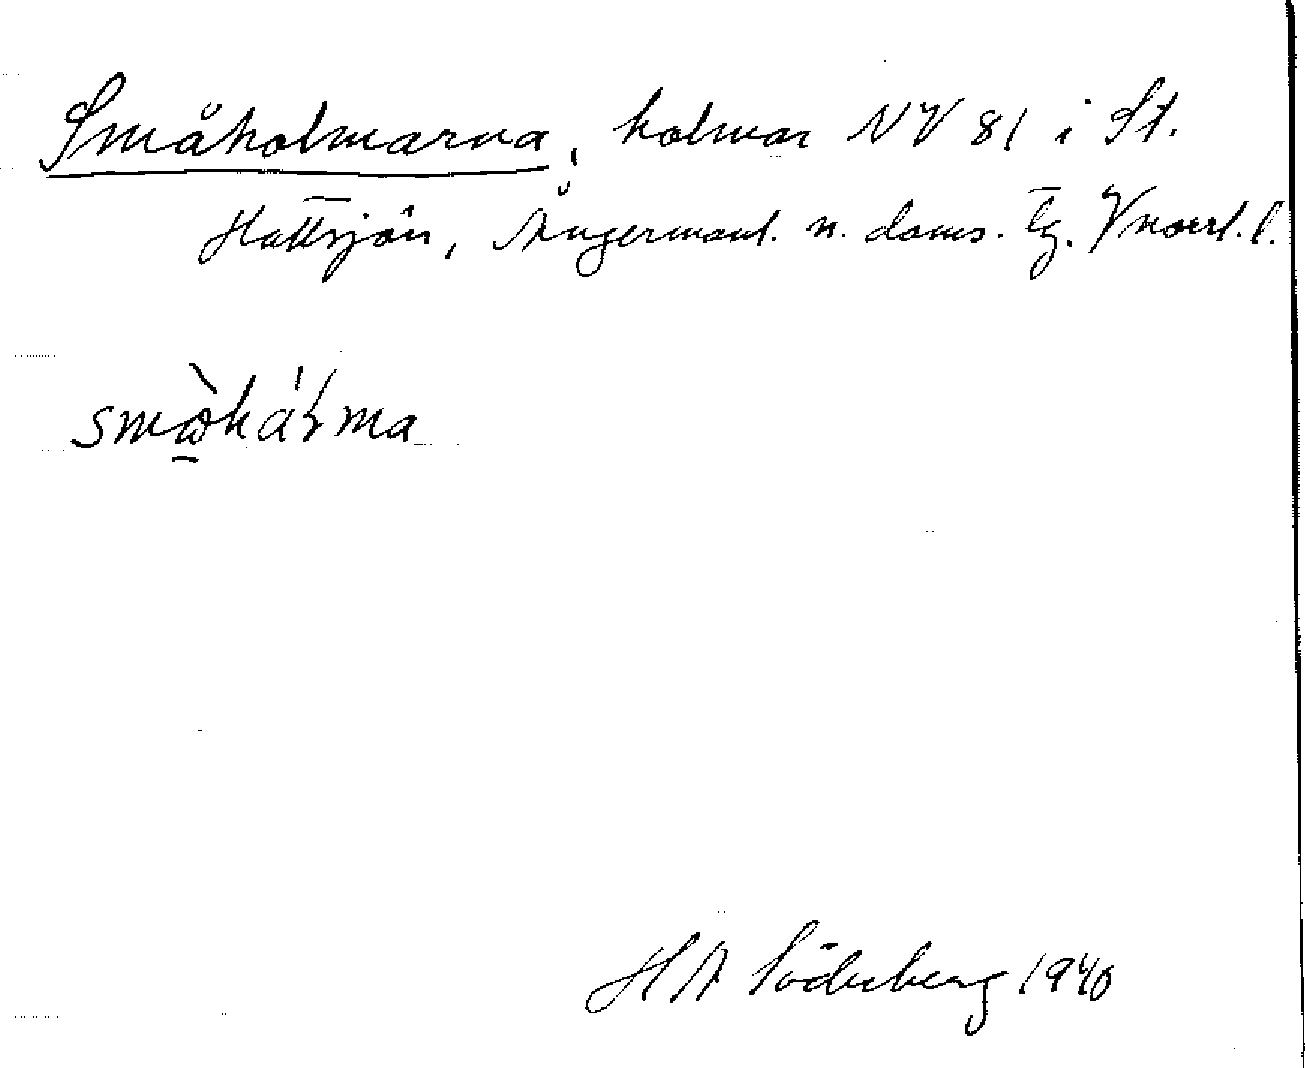 Småholmarna, holmar NV 81 i St.
Hattsjön, Ångermanl. n. doms. tg. Vnorrl. l.
småhàɫma
H A Söderberg 1940